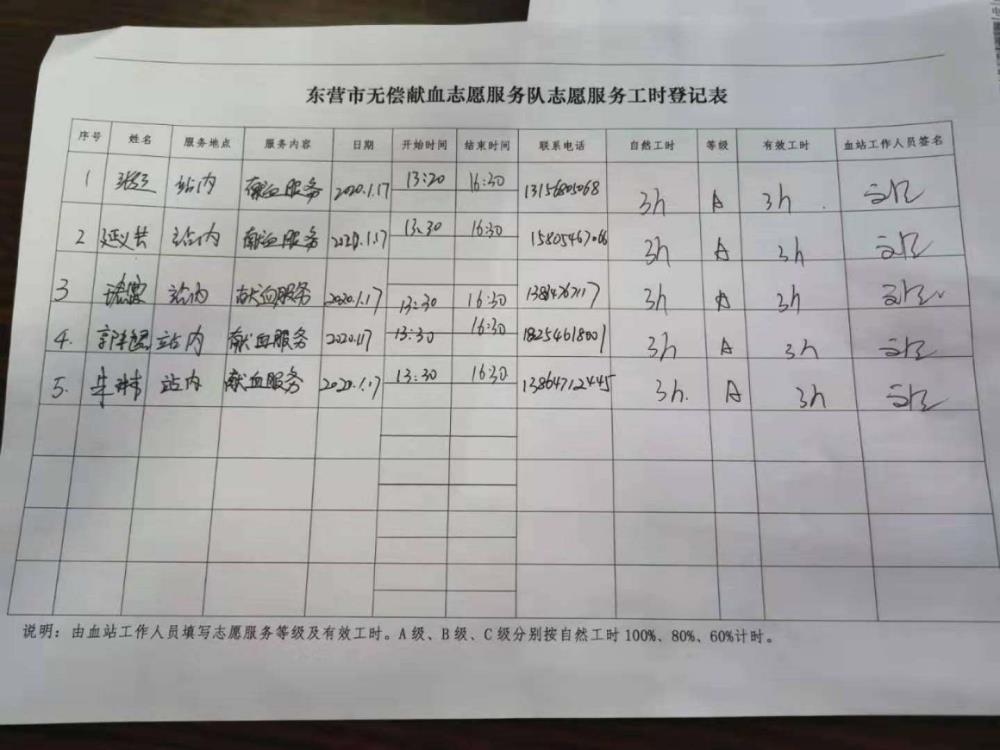 东营市无偿献血志愿服务队志愿服务工时登记表
序号 姓名 服务地点 服务内容 日期 开始时间 结束时间 联系电话 自然工时 等级 有效工时 血站工作人员签名
1 站内 献血服务 2020.1.17 13:20 16:30 13156805068 3h A 3h
2 站内 献血服务 2020.1.17 13:30 16:30 15805467066 3h A 3h
3 站内 献血服务 2020.1.17 13:30 16:30 3h A 3h
4. 站内 献血服务 13:30 16:30 18254618001 3h A 3h
5. 站内 献血服务 2020.1.17 13:30 16:30 13864712445 3h. A 3h
说明：由血站工作人员填写志愿服务等级及有效工时。A级、B级、C级分别按自然工时100%、80%、60%计时。